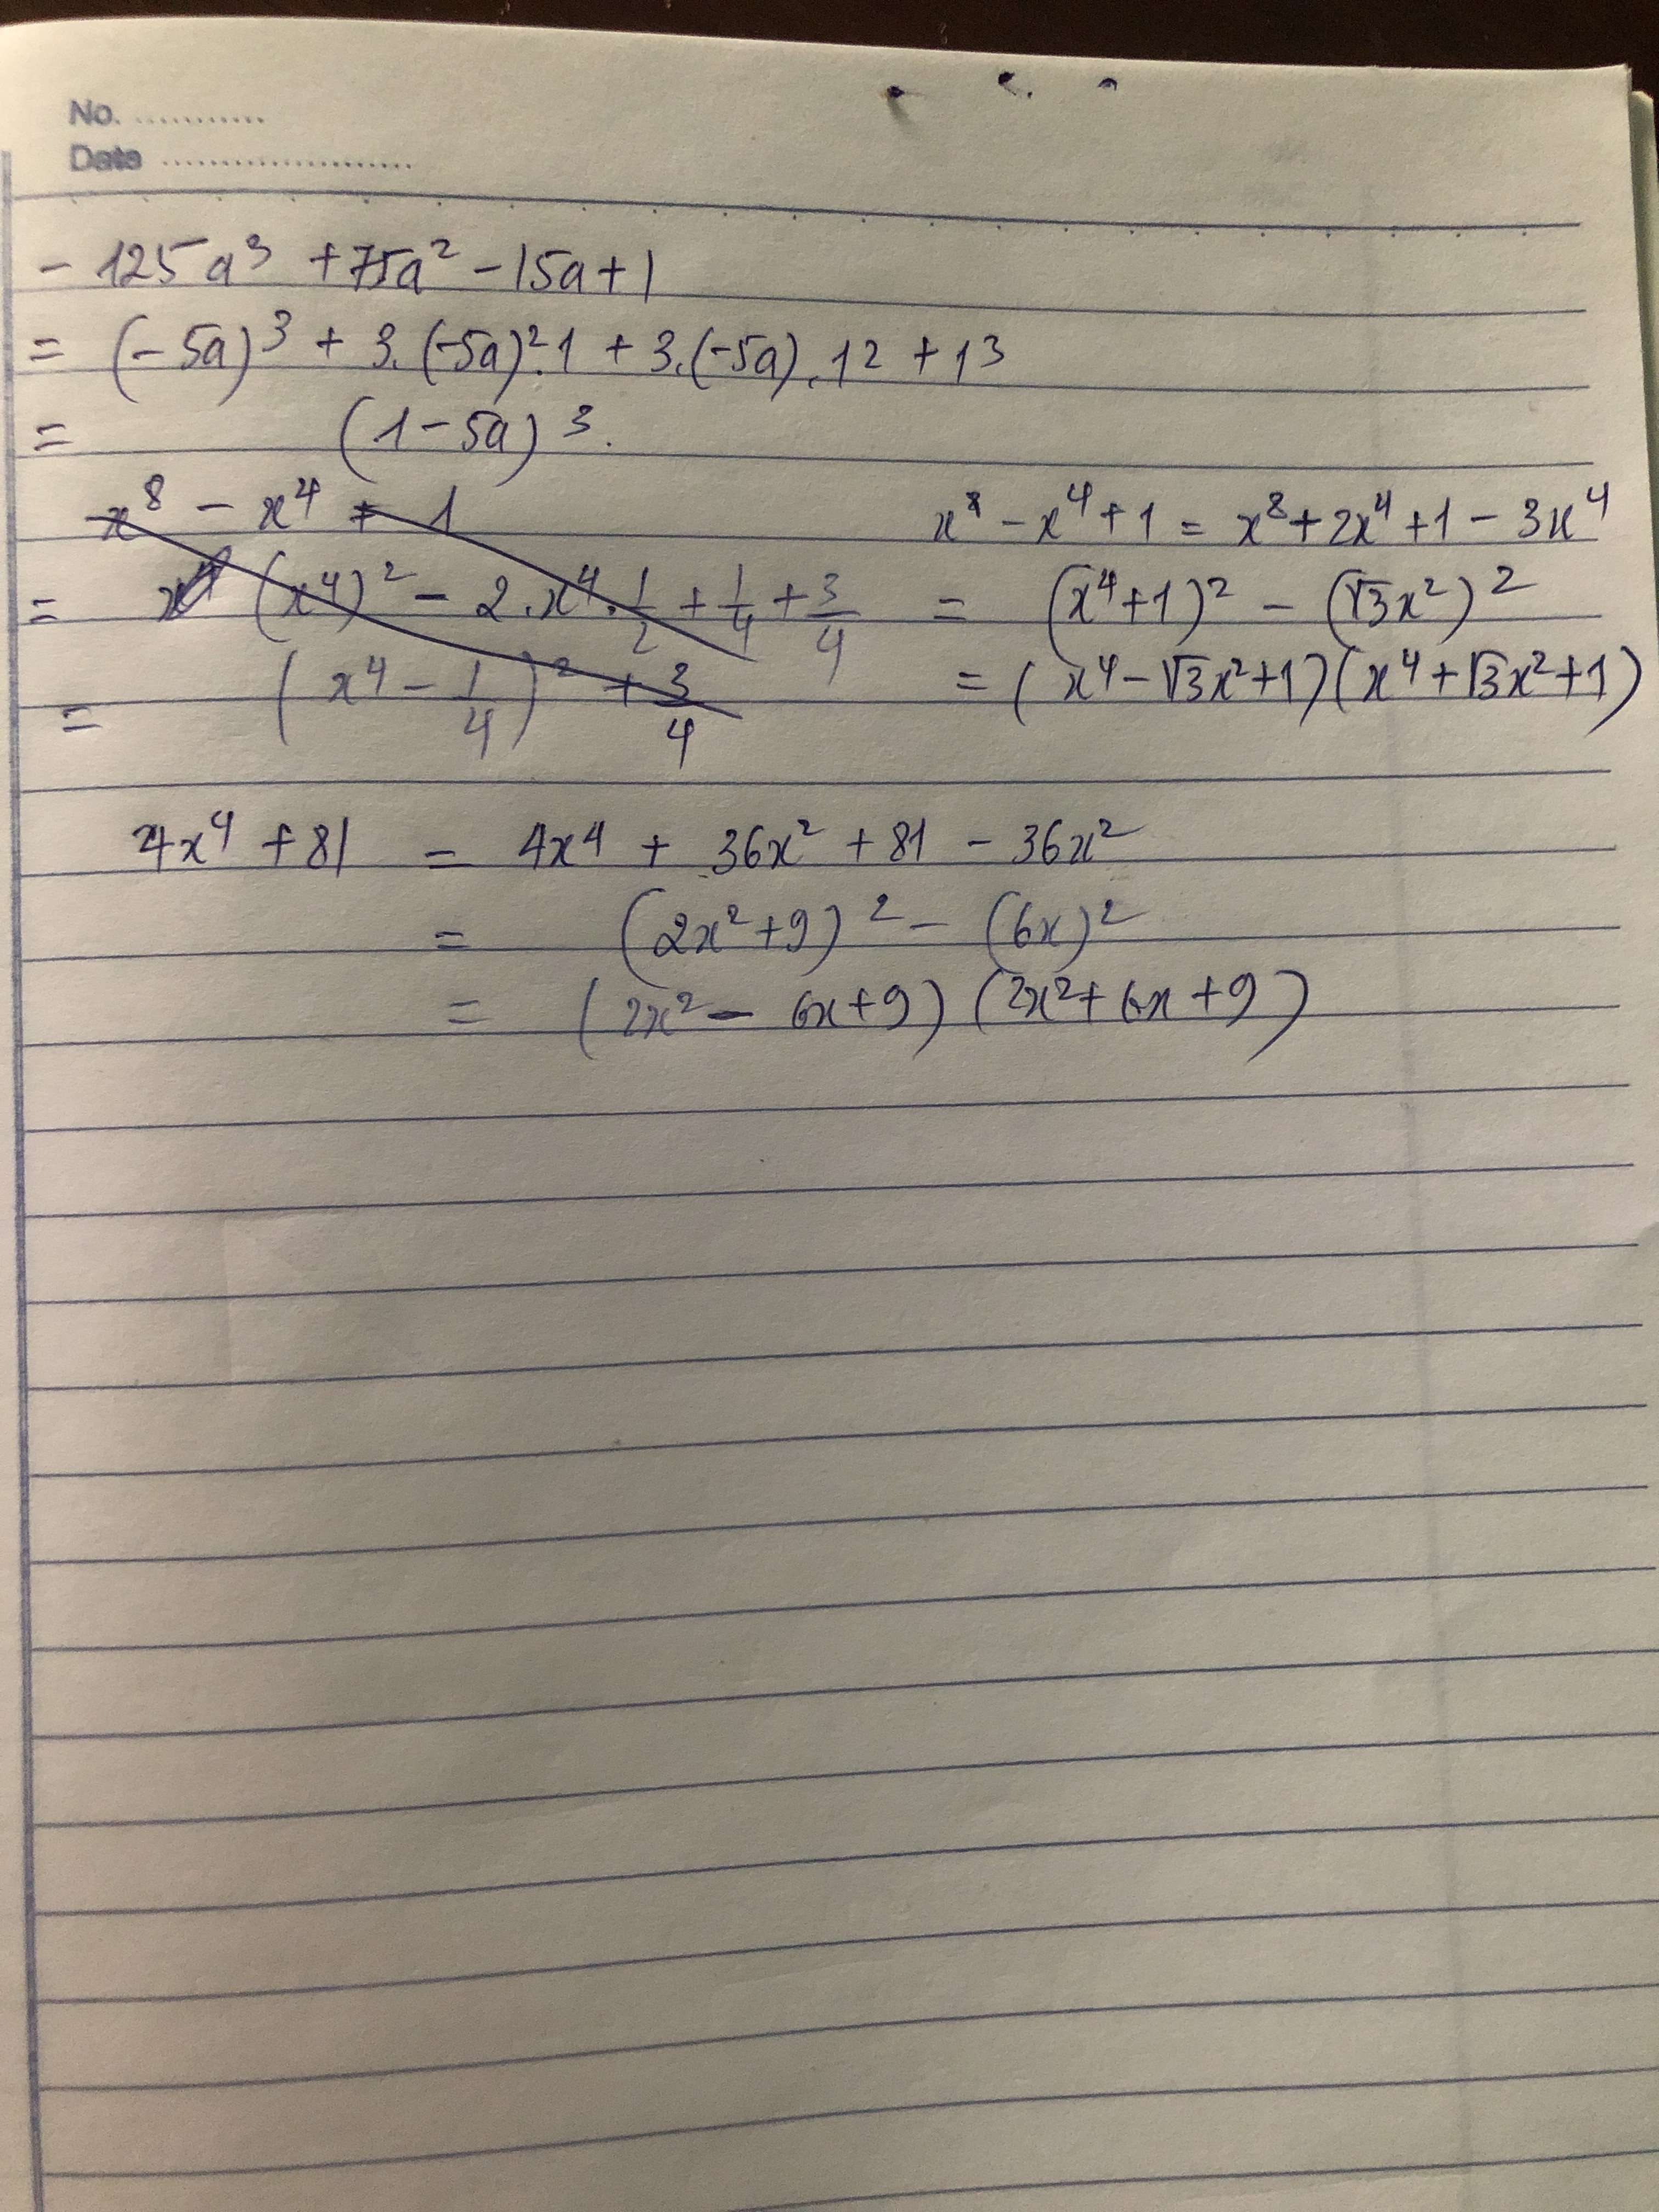 No. ...........
Date ......................
- 125a³ + 75a² - 15a + 1
= (-5a)³ + 3.(-5a)².1 + 3.(-5a).1² + 1³
= (1 - 5a)³.
x⁸ - x⁴ + 1
= (x⁴)² - 2.x⁴.1/2 + 1/4 + 3/4
= (x⁴ - 1/4)² + 3/4
x⁸ - x⁴ + 1 = x⁸ + 2x⁴ + 1 - 3x⁴
= (x⁴ + 1)² - (√3x²)²
= (x⁴ - √3x² + 1)(x⁴ + √3x² + 1)
4x⁴ + 81 = 4x⁴ + 36x² + 81 - 36x²
= (2x² + 9)² - (6x)²
= (2x² - 6x + 9)(2x² + 6x + 9)